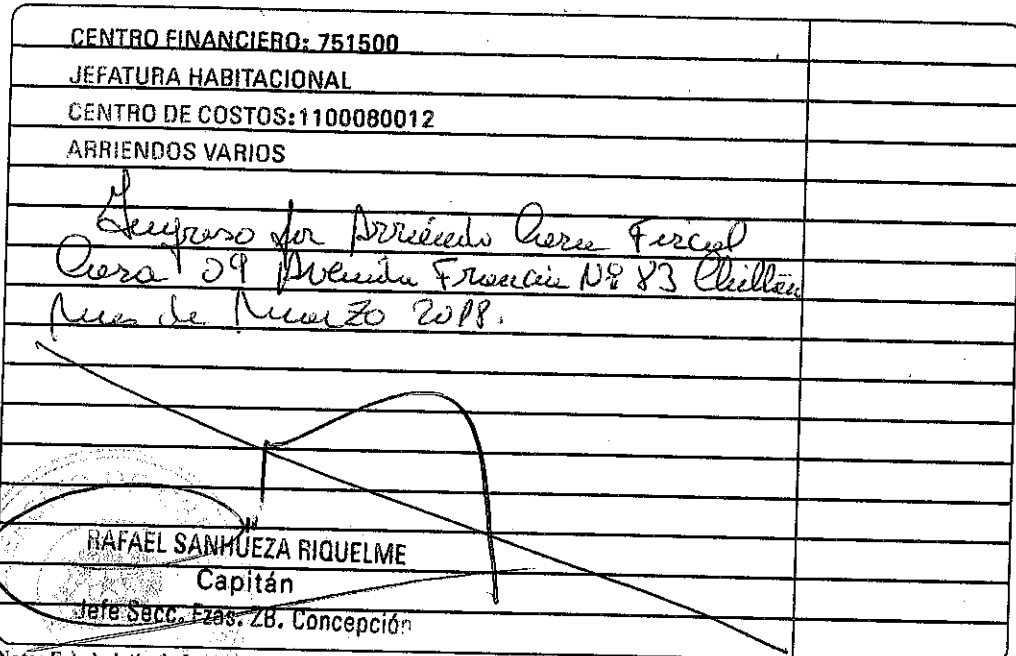 CENTRO FINANCIERO: 751500
JEFATURA HABITACIONAL
CENTRO DE COSTOS:1100080012
ARRIENDOS VARIOS
Ingreso por Arriendo Casa Fiscal
Casa 09 Avenida Francia Nº 83 Chillán
Mes de Marzo 2018.
RAFAEL SANHUEZA RIQUELME
Capitán
Jefe Secc. Fzas. ZB. Concepción